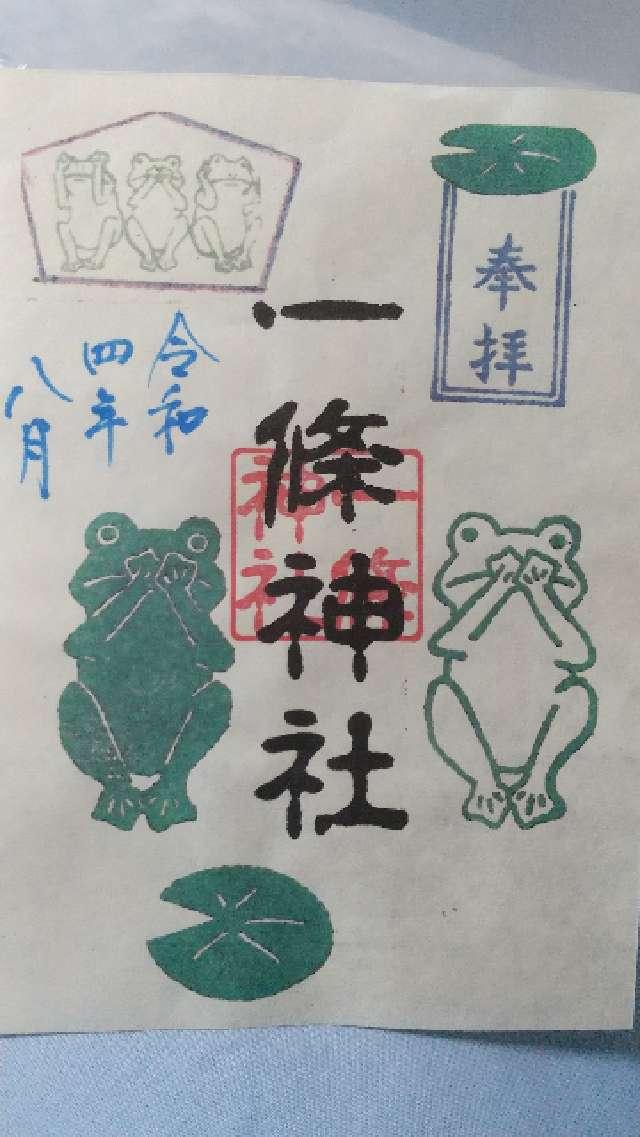 奉拝
一條神社
一條
神社
令和
四年
八月